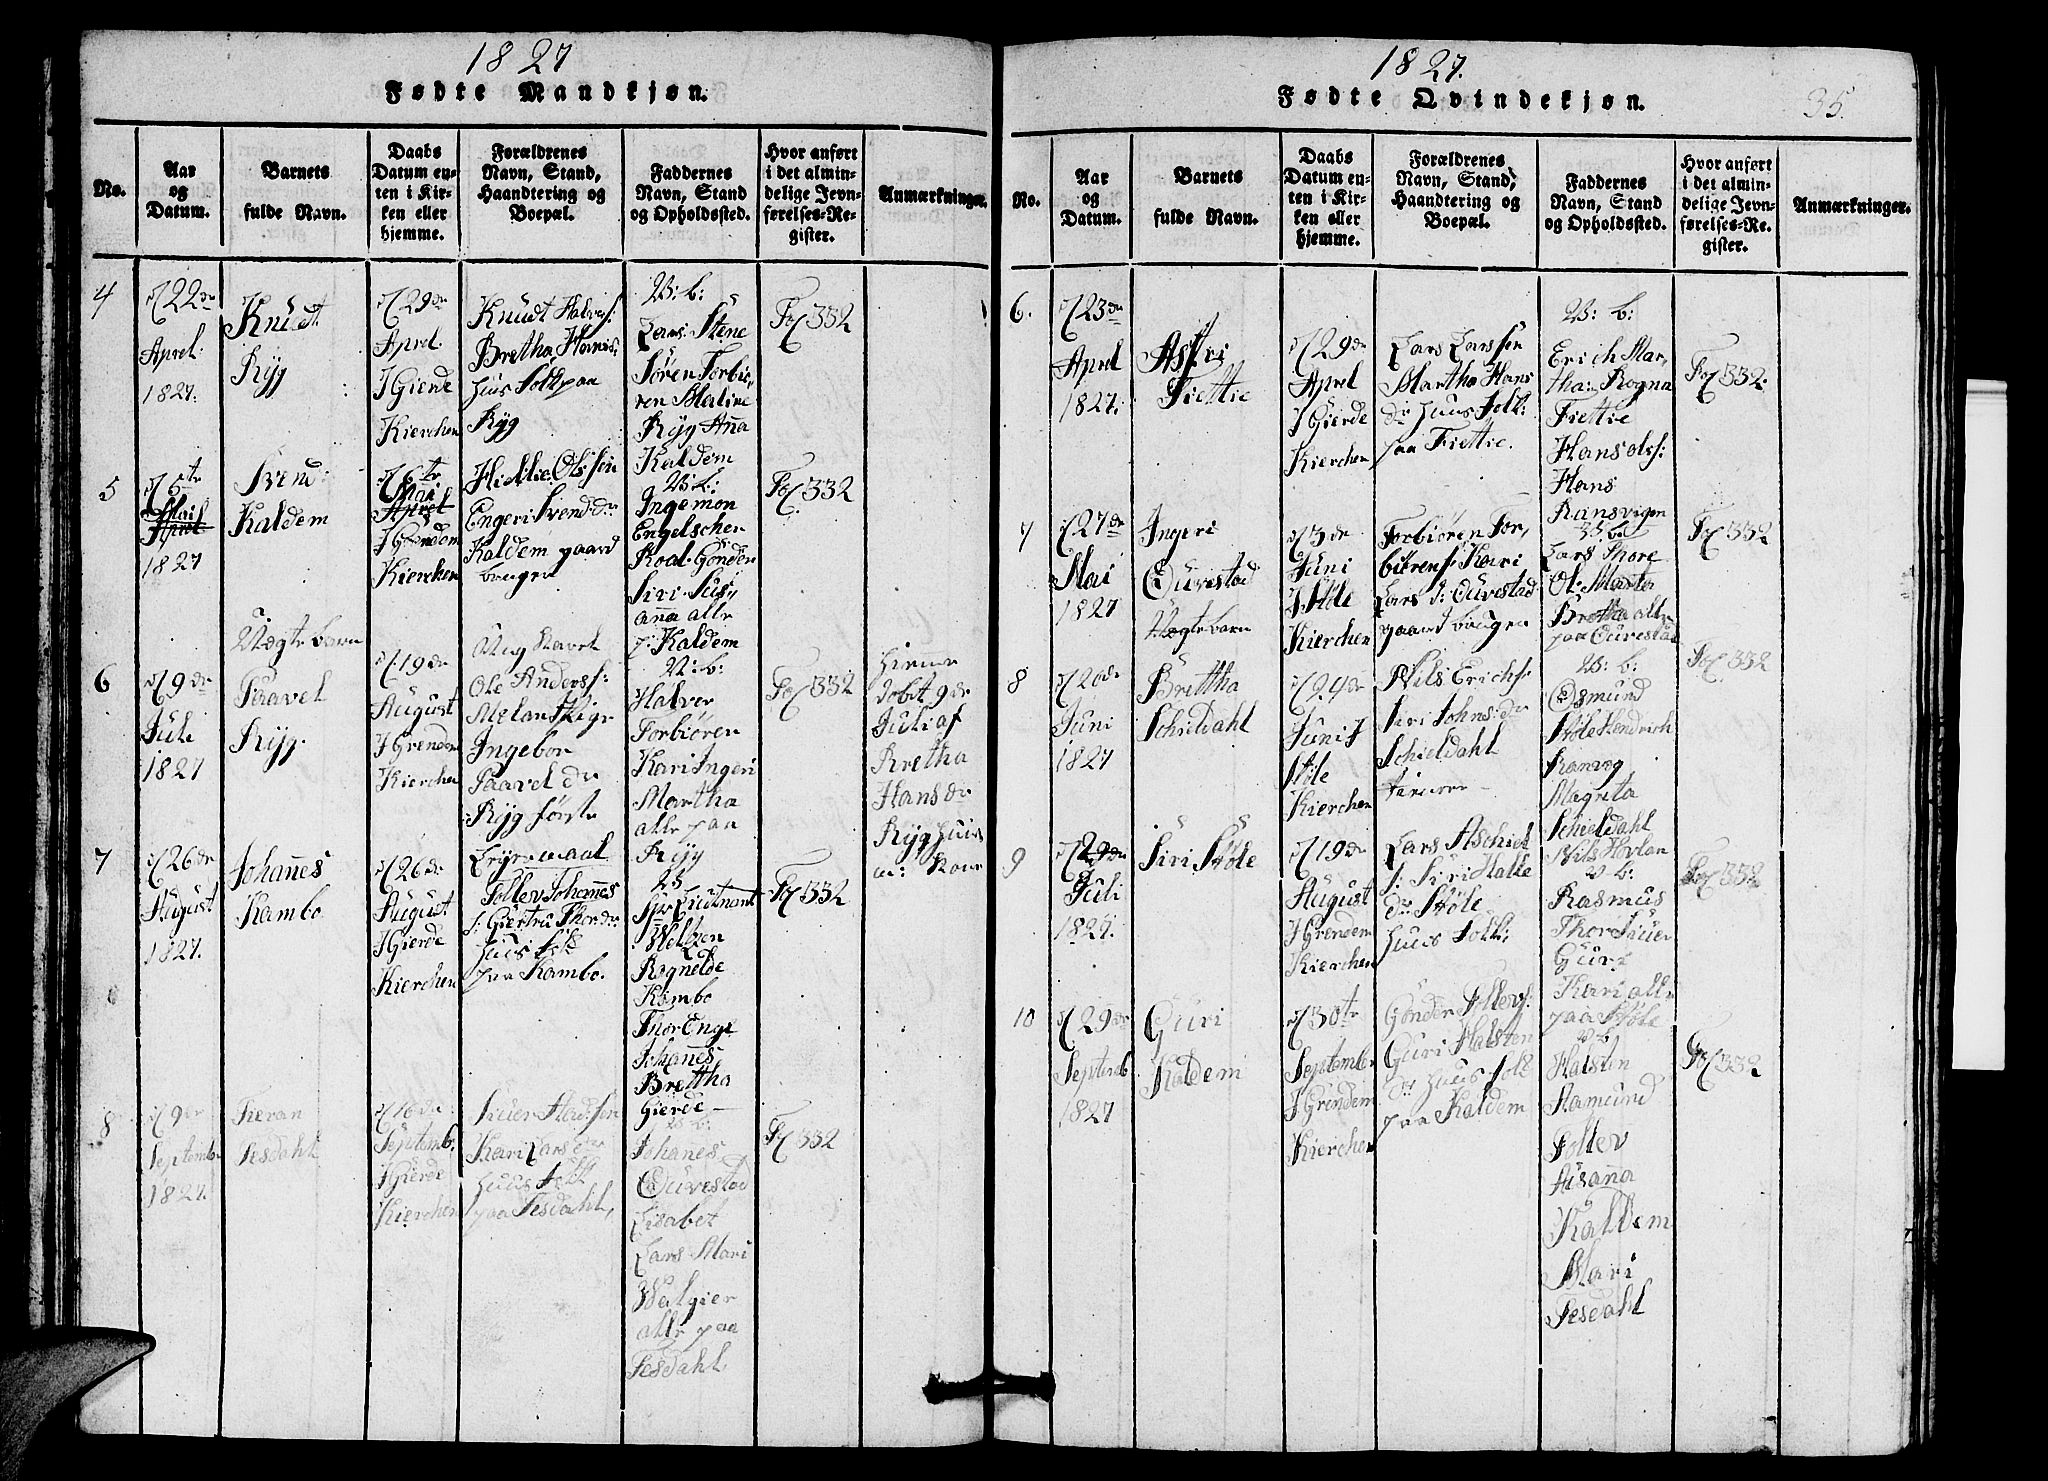 1827
Fødte Mandkjøn.
No.
Aar
og
Datum.
Barnets
fulde Navn.
Daabs
Datum en-
ten i Kir-
ken eller
hjemme.
Forældrenes
Navn, Stand,
Haandtering og
Boepæl.
Faddernes
Navn, Stand
og Opholdssted.
Hvor anført
i det almin-
delige Jevn-
førelses-Re-
gister.
Anmærkninger.
4
22de
Aprel
1827.
Knudt
Ryg
29de
Aprel
I Gierde
Kierchen
Knudt Halvors:
Bretha Hanis
huus Folk paa
Ryg
V: b:
Lars Stene
Søren Torbiø,
ren Maline
Ryg Anna
Kaldem
Fol 332
5
5te
Mai
Aprel
1827
Svend
Kaldem
6te
Mai
Aprel
I Grendem
Kierchen
Olssøn
Engeri Svends dr
Kaldem gaard
bruger
V: b:
Ingemon
Engelschen
Roal Gonder
Siri Sus,
anna alle
p: Kaldem
Fol 332
6
9de
Juli
1827
Uægte barn
Taavel
Ryg.
19de
August
I Grendem
Kierchen
Ung Karel
Ole Anderss:
Melans Pige
Ingebor
Taavel dr
Ryg første
Leyermaal
V: b:
Halvor
Torbiøren
Kari Ingeri
Martha
alle paa
Ryg
Fol 332
Hieme
døbt 9de
Juli af
Bretha
Hans dr
Ryg huus
m: Kone
7
26de
August
1827.
Johannes
Kambo
26de
August
I Gierde
Kierchen
Tollev Johannes
s: Giertru Thor dr
huus folk
paa Kambo.
V b
Lieutnant
Rognelde
Kambo
Thor Enge
Johannes
Brettha
Gierde
Fol 332
8
9de
September
1827.
Tesdahl
16de
Septemb.
I Gierde
Kierchen
Kari Lars dr
huus Folk
paa Tesdahl,
V b:
Johannes
Ouvestad
Lisabet
Lars Mari
Valgier
alle paa
Tesdahl
Fol 332
1827.
Fødte Qvindekjøn.
35.
No.
Aar
og
Datum.
Barnets
fulde Navn.
Daabs
Datum en-
ten i Kir-
ken eller
hjemme.
Forældrenes
Navn, Stand,
Haandtering og
Boepæl.
Faddernes
Navn, Stand
og Opholdssted.
Hvor anført
i det almin-
delige Jevn-
førelses-Re-
gister.
Anmærkninger.
6.
23de
Aprel
1827.
Astri
Fiettie
29de
Aprel
I Gierde
Kierchen
Lars Larssen
Martha Hans
dr huus Folk:
paa Fiettie.
V: b:
Erich Mar,
tha: Rogna
Fiettie
Hans olss:
Hans
Ransvigen
Fol 332.
7
27de
Mai
1827
Ingeri
Ouvestad
Uægte barn
3de
Juni
I Støle
Kierchen
Torbiøren Tor,
biørens: Kari
Lars d: Ouvestad
gaard bruger
V: b:
Lars Thore
Ol: Marta
Bretha alle
paa Ouvestad
Fol 332
8
20de
Juni
1827
Brettha
Schieldahl
24de
Juni I
Støle
Kierchen
Nils Erichs:
Siri Johns: dr
Schieldahl
V: b:
Osmund
Støle Hendrich
Ranveg
Magreta
Schieldahl
Nils Hovlan
Fol 332
9
29de
Juli
1827.
Siri Støle
19de
August
I Grendem
Kierchen
Lars Aschiel
s: Siri Halle
dr Støle
huus Folk:
V: b:
Rasmus
Thor Siver
Guri
Kari alle
paa Støle
Fol 332
10
29de
Septemb
1827
Guri
Kaldem
30te
September
I Grendem
Kierchen
Gonder Tollevs:
Guri Halsten
dr huus Folk
paa Kaldem
V b
Halsten
Aamund
Tollev
Susanna
Kaldem
Mari
Tesdahl
Fol 332